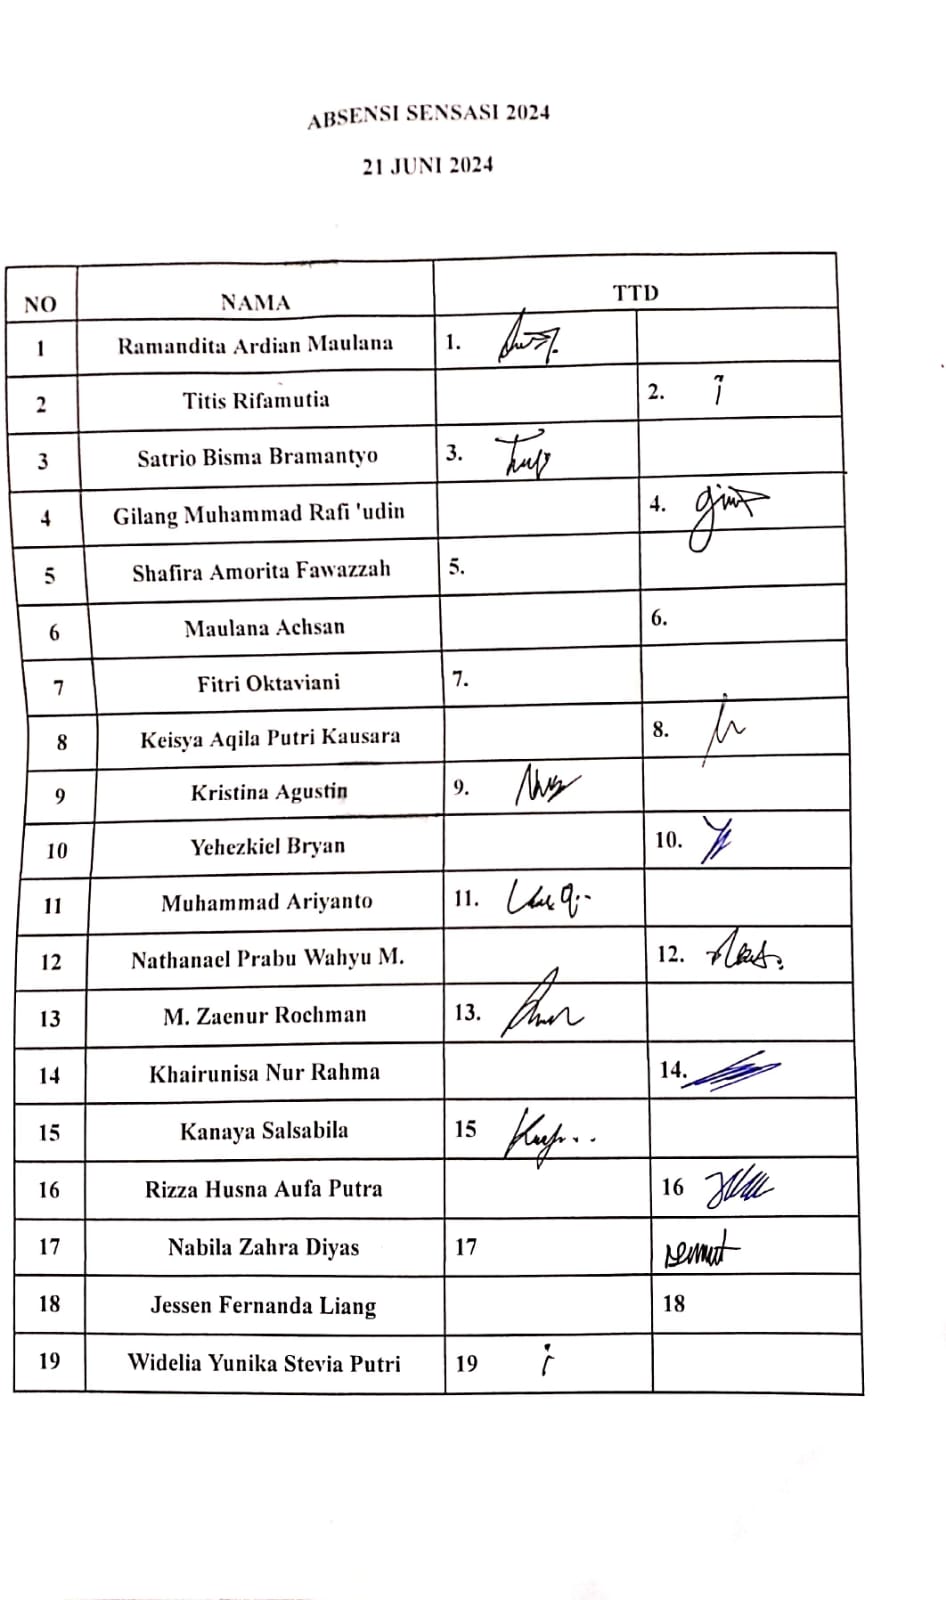 ABSENSI SENSASI 2024
21 JUNI 2024
NO NAMA TTD
1 Ramandita Ardian Maulana 1.
2 Titis Rifamutia 2.
3 Satrio Bisma Bramantyo 3.
4 Gilang Muhammad Rafi 'udin 4.
5 Shafira Amorita Fawazzah 5.
6 Maulana Achsan 6.
7 Fitri Oktaviani 7.
8 Keisya Aqila Putri Kausara 8.
9 Kristina Agustin 9.
10 Yehezkiel Bryan 10.
11 Muhammad Ariyanto 11.
12 Nathanael Prabu Wahyu M. 12.
13 M. Zaenur Rochman 13.
14 Khairunisa Nur Rahma 14.
15 Kanaya Salsabila 15
16 Rizza Husna Aufa Putra 16
17 Nabila Zahra Diyas 17
18 Jessen Fernanda Liang 18
19 Widelia Yunika Stevia Putri 19